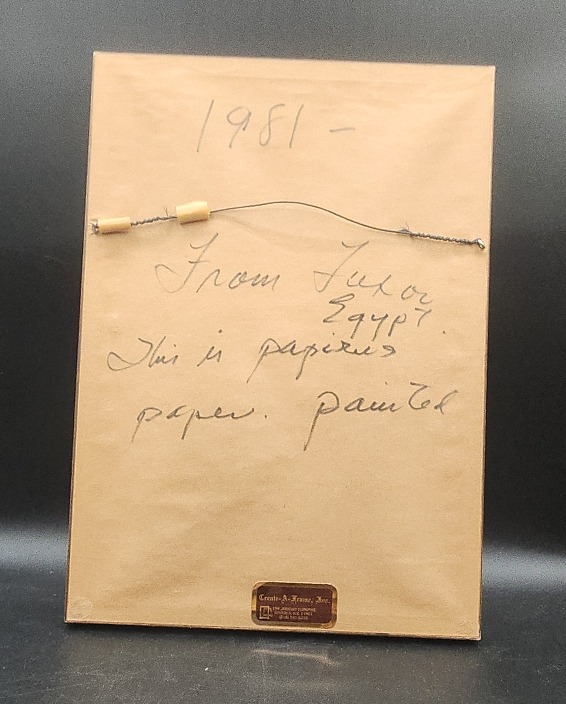 1981 -
From Luxor
Egypt.
This is papirus
paper. painted
Create-A-Frame, Inc.